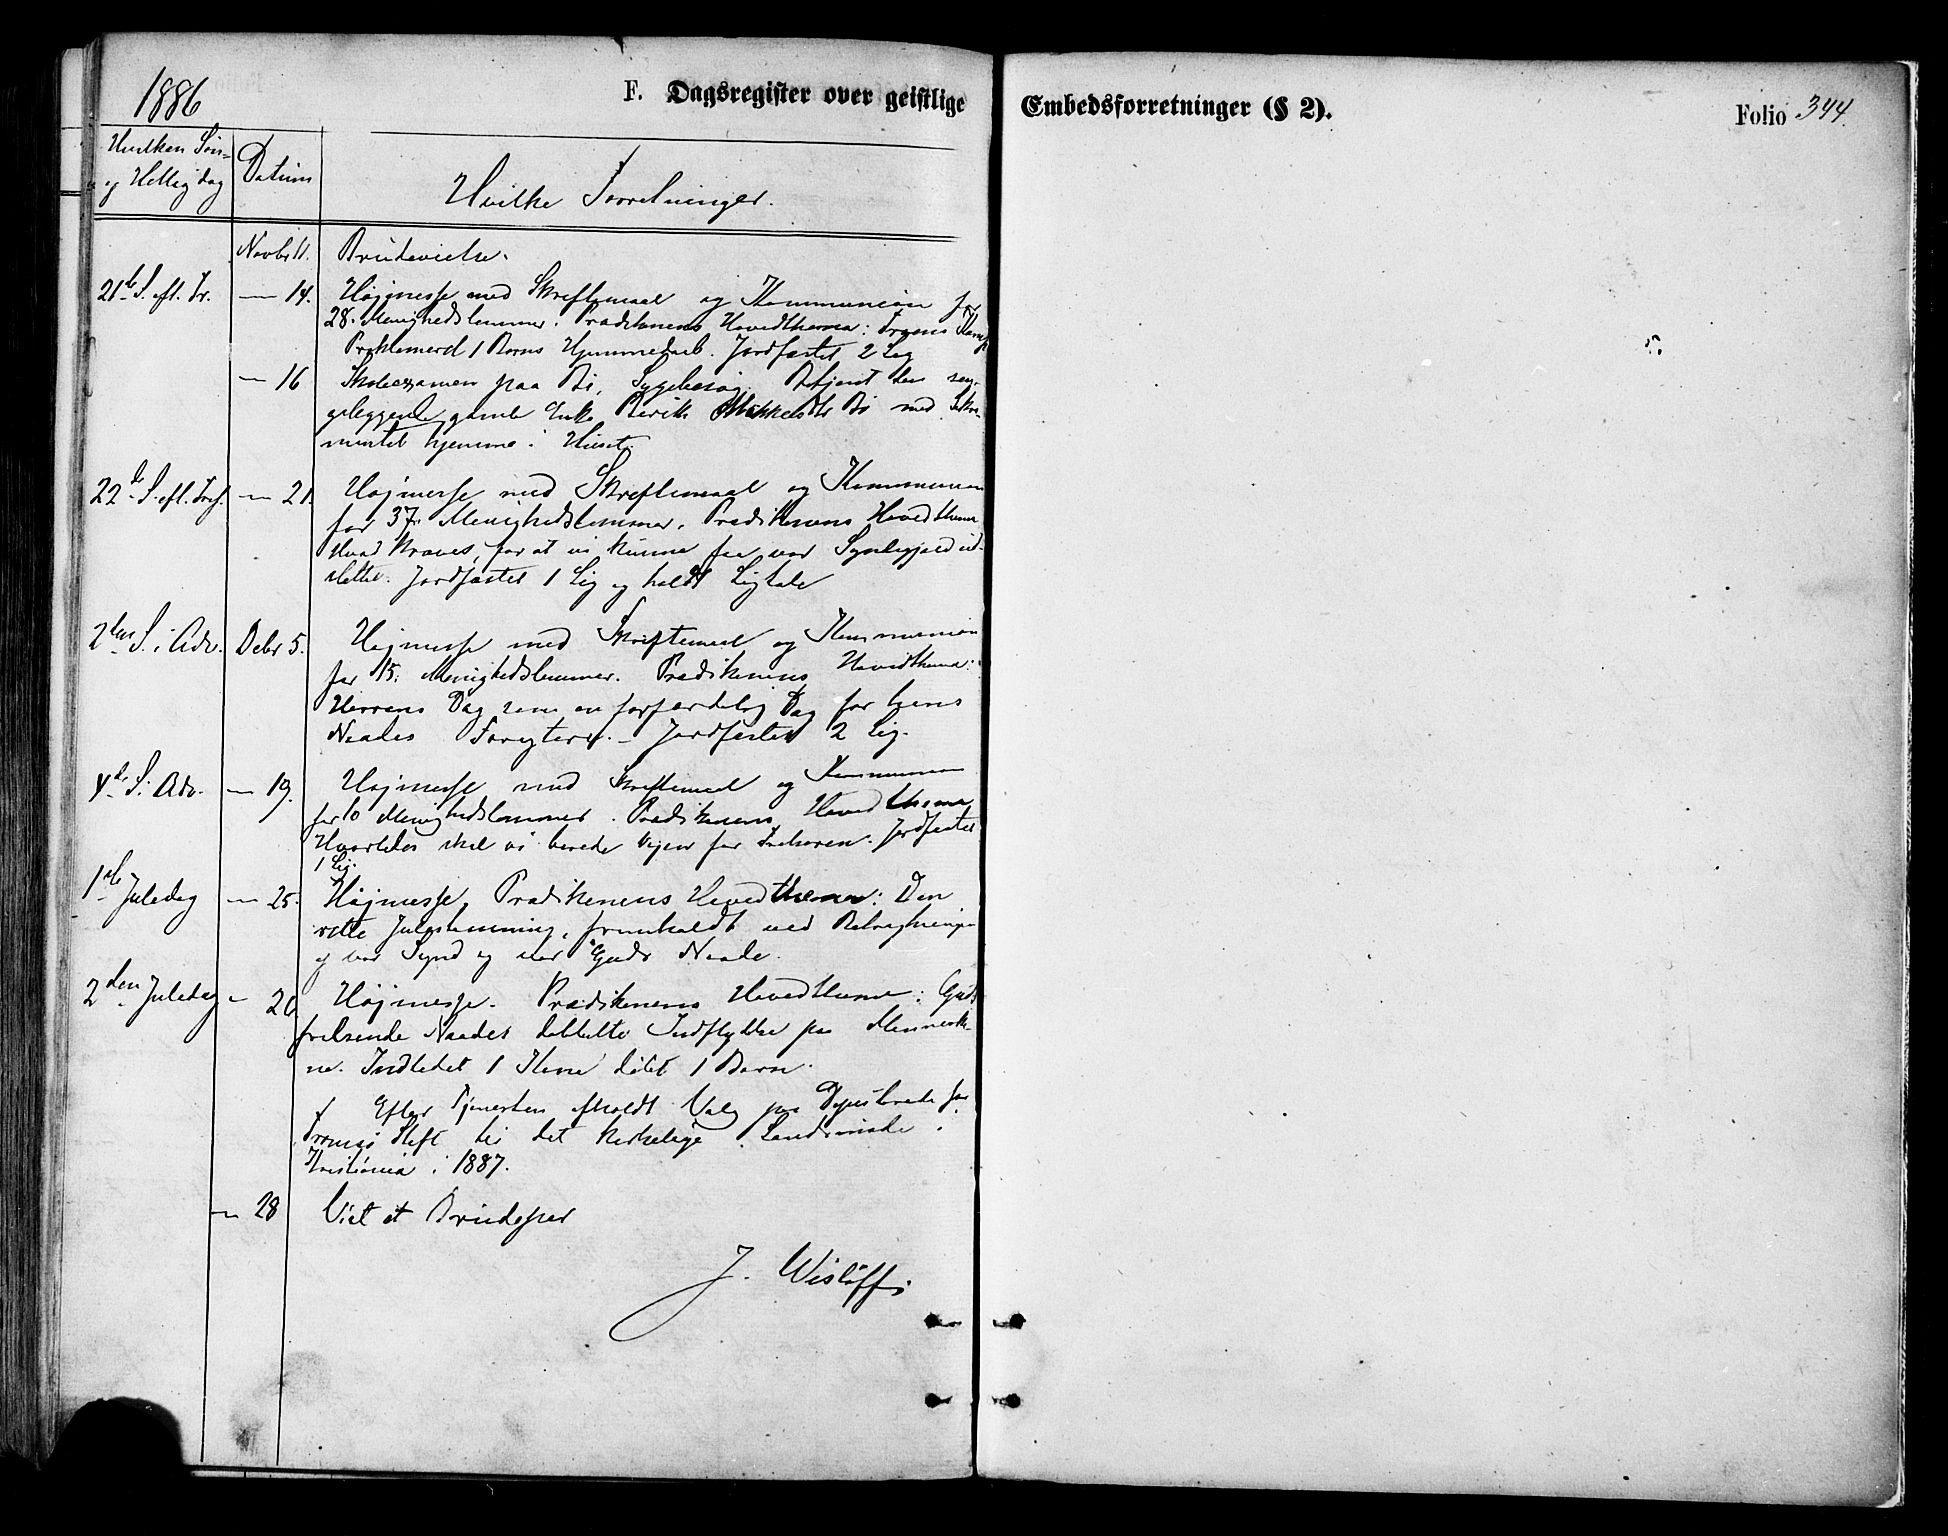 1886
F. Dagsregister over geistlige Embedsforretninger (§ 2).
Folio 344.
Hvilken Søn-
og Hellig dag
Datum
Hvilke Forretninger.
Novbr 11. Brudevielse.
21de S. eft. Tr. — 14. Højmesse med Skriftemaal og Kommunion for
28. Menighedslemmer. Prædikenens Hovedthema: Troens Kamp
Proklamerd 1 Barns Hjemmedaab. Jordfæstet 2 Lig
— 16 Skoleexamen paa Bø, Sygebesøg. Betjent den sen-
geliggende gamle Enke Bø med Sakra-
mentet hjemme i Huset.
22de S. eft. Tref. — 21. Højmesse med Skriftemaal og Kommunion
for 37. Menighedslemmer. Prædikenens Hovedthema
Hvad kræves, for at vi kunne faa vor Syndegjæld ud-
slettet. Jordfæstet 1 Lig og holdt Ligtale
2den S. i Adv. Debr 5. Højmesse med Skriftemaal og Kommunion
for 15. Menighedslemmer. Prædikenens Hovedthema:
Herrens Dag som en forfærdelig Dag for hans
Naades Foragtere. — Jordfæstet 2 Lig.
4de S. i Adv. — 19. Højmesse med Skriftemaal og Kommunion
for 10 Menighedslemmer. Prædikenens Hovedthema
Hvorledes skal vi berede Vejen for Jordfæstet
1 Lig.
1ste Juledag — 25. Højmesse, Prædikenens Hovedthema: Den
rette Julestemning, fremkaldt ved Betragtningen
af vor Synd og af Guds Naade.
2den Juledag — 26. Højmesse. Prædikenens Hovedthema: Guds
frelsende Naades dobbelte Indflydelse paa Menneske-
ne. Indledet 1 Kone døbt 1 Barn.
Efter Tjenesten afholdt Valg paa Deputerede for
Tromsø Stift til det kirkelige Landsmøde i
Kristiania i 1887.
— 28 Viet et Brudepar
J. Wisløff